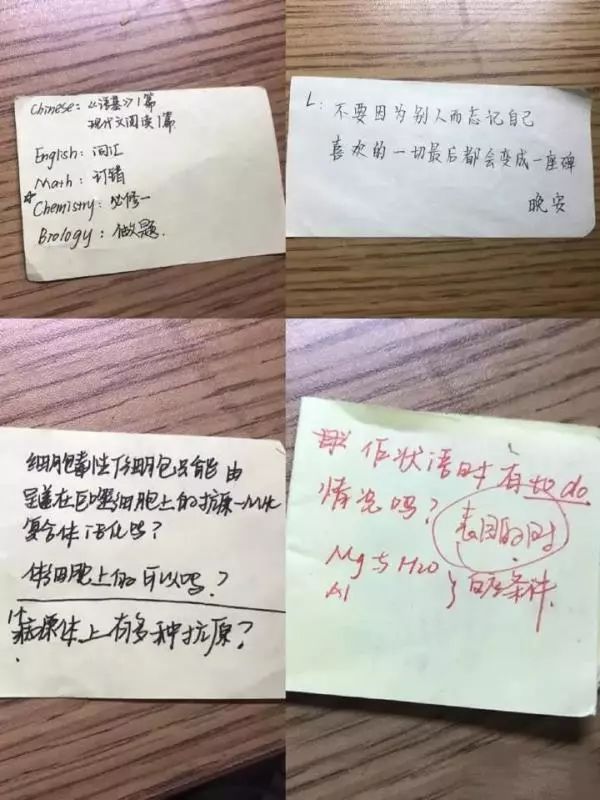 Chinese：《语基》1篇
现代文阅读1篇
English：词汇
Math：订错
☆Chemistry：必修一
Biology：做题.
L：不要因为别人而忘记自己
喜欢的一切最后都会变成一座碑
晚安
细胞毒性T细胞只能由
呈递在巨噬细胞上的抗原-MHC
复合体活化吗？
体细胞上的可以吗？
1个病原体上有多种抗原？
作状语时有to do
情况吗？
表目的时
Mg与H2O
Al
条件.